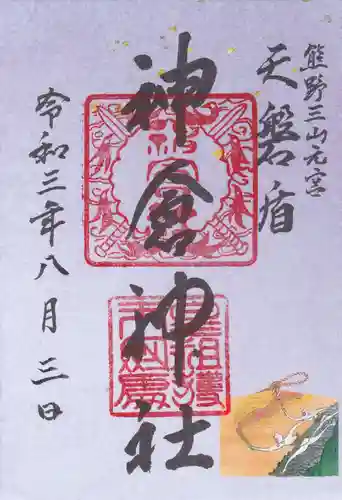 熊野三山元宮
天磐盾
神倉神社
令和三年八月三日